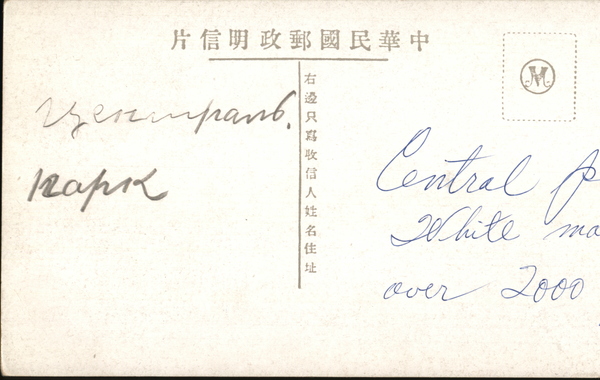 片信明政郵國民華中
右邊只寫收信人姓名住址
Централь.
парк
Central P
White ma
over 2000